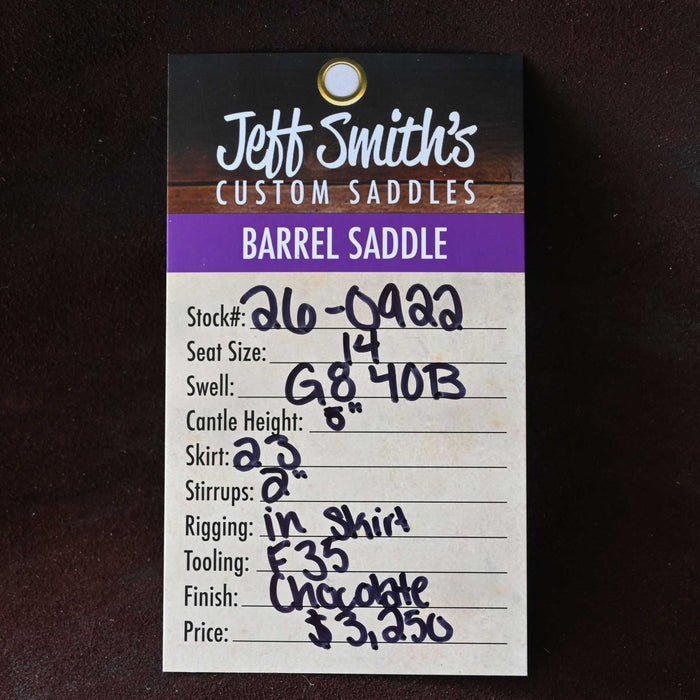 Jeff Smith's
CUSTOM SADDLES
BARREL SADDLE
Stock#: 26-0922
Seat Size: 14
Swell: G8 40B
Cantle Height: 5"
Skirt: 23
Stirrups: 2"
Rigging: in Skirt
Tooling: F35
Finish: Chocolate
Price: $3,250